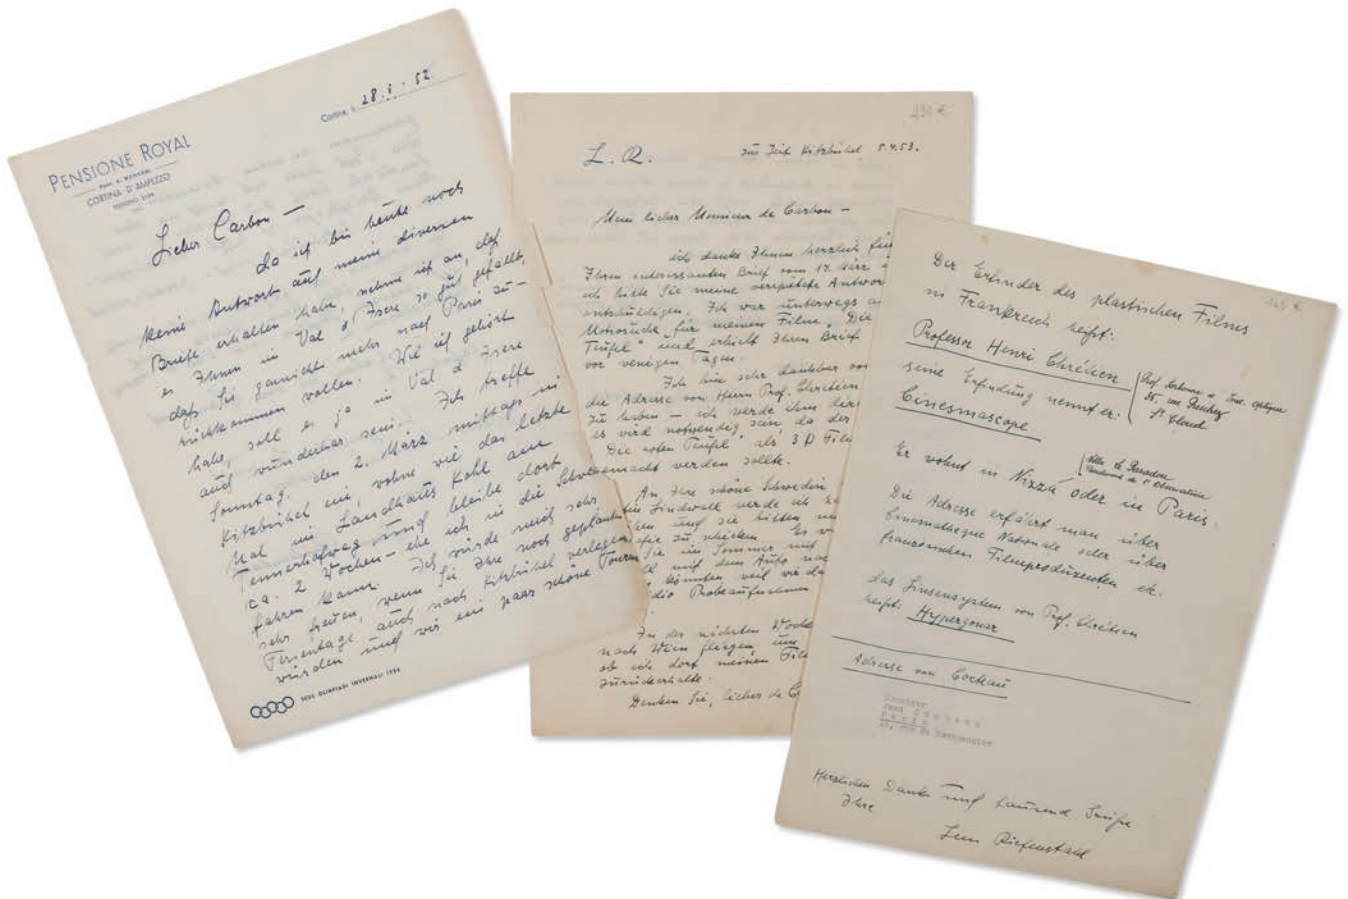 PENSIONE ROYAL
CORTINA D'AMPEZZO
Cortina, li 28.I.52
Lieber Carbon —
da ich bis heute noch
keine Antwort auf meine diversen
Briefe erhalten habe, nehme ich an, daß
es Ihnen in Val d'Isere so gut gefällt,
daß Sie garnicht mehr nach Paris zu-
rückkommen wollen. Wie ich gehört
habe, soll es ja in Val d Isere
auch wunderbar sein. Ich treffe
Sonntag, den 2. März mittags in
Kitzbühel ein, wohne wie das letzte
Mal im Landhaus Kohl am
Tennerhofweg und bleibe dort
ca. 2 Wochen — ehe ich in die Schweiz
fahren kann. Ich würde mich sehr
sehr freuen, wenn Sie Ihre noch geplanten
Ferientage auch nach Kitzbühel verlegen
würden und wir ein paar schöne Touren
SEDE OLIMPIADI INVERNALI 1956
230 €
L. R.
zur Zeit Kitzbühel 5.4.53.
Mein lieber Monsieur de Carbon —
ich danke Ihnen herzlich für
Ihren interessanten Brief vom 17. März
ich bitte Sie meine verspätete Antwort
entschuldigen. Ich war unterwegs a
Motivsuche für meinen Film "Die
Teufel" und erhielt Ihren Brief
vor wenigen Tagen.
Ich bin sehr dankbar
die Adresse von Herrn Prof. Chretien
zu haben — ich werde ihm
es wird notwendig sein, da der
"Die roten Teufel" als 3 D Film
gemacht werden sollte.
An Ihre schöne Schwedin
Lindwall werde ich
und sie bitten
zu schicken. Es
Sie im Sommer mit
mit dem Auto
könnten weil wir
Probeaufnahmen
In der nächsten Woche
nach Wien fliegen um
ob ich dort meinen Film
zurückerhalte.
Denken Sie, lieber de C
Der Erfinder des plastischen Films
in Frankreich heißt:
Professor Henri Chrétien
seine Erfindung nennt er:
Cinesmascope
St Cloud
Er wohnt in Nizza oder in Paris.
Die Adresse erfährt man über
Cinematheque Nationale oder über
französischen Filmproduzenten ek.
das Linsensystem von Prof. Chretien
heißt: Hypergonar
Adresse von Cocteau
Monsieur
Paris
Herzlichen Dank und tausend Grüße
Ihre
Leni Riefenstahl